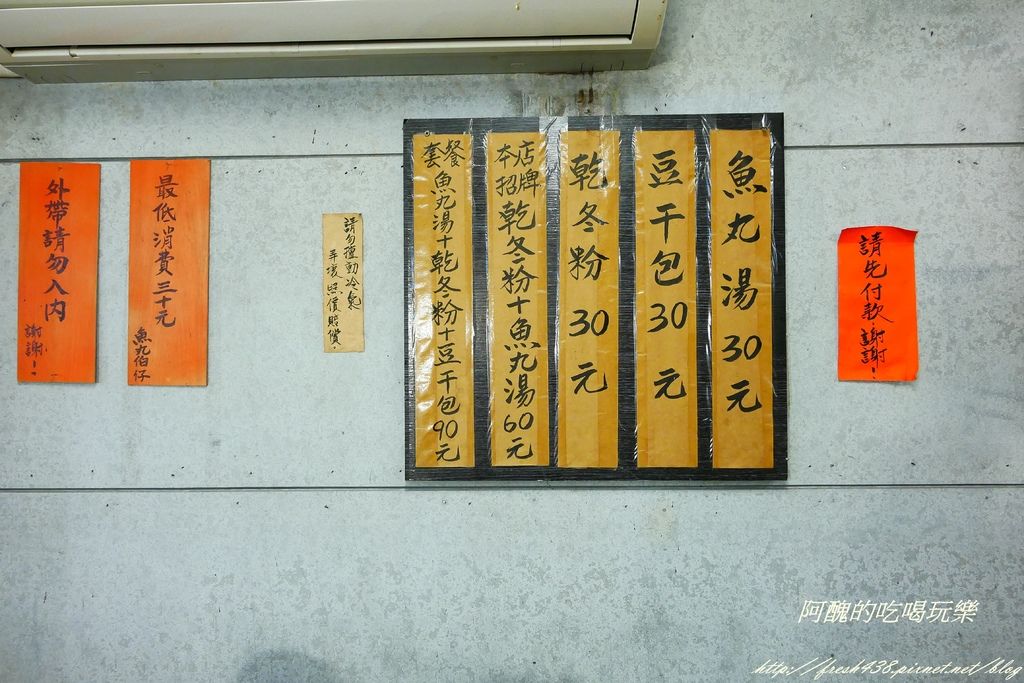 請先付款，謝謝！
魚丸湯30元
豆干包30元
乾冬粉30元
本店招牌 乾冬粉+魚丸湯60元
套餐 魚丸湯+乾冬粉+豆干包90元
請勿擅動冷氣
弄壞照價賠償。
最低消費三十元
魚丸伯仔
外帶請勿入內
謝謝！
阿醜的吃喝玩樂
http://fresh438.pixnet.net/blog